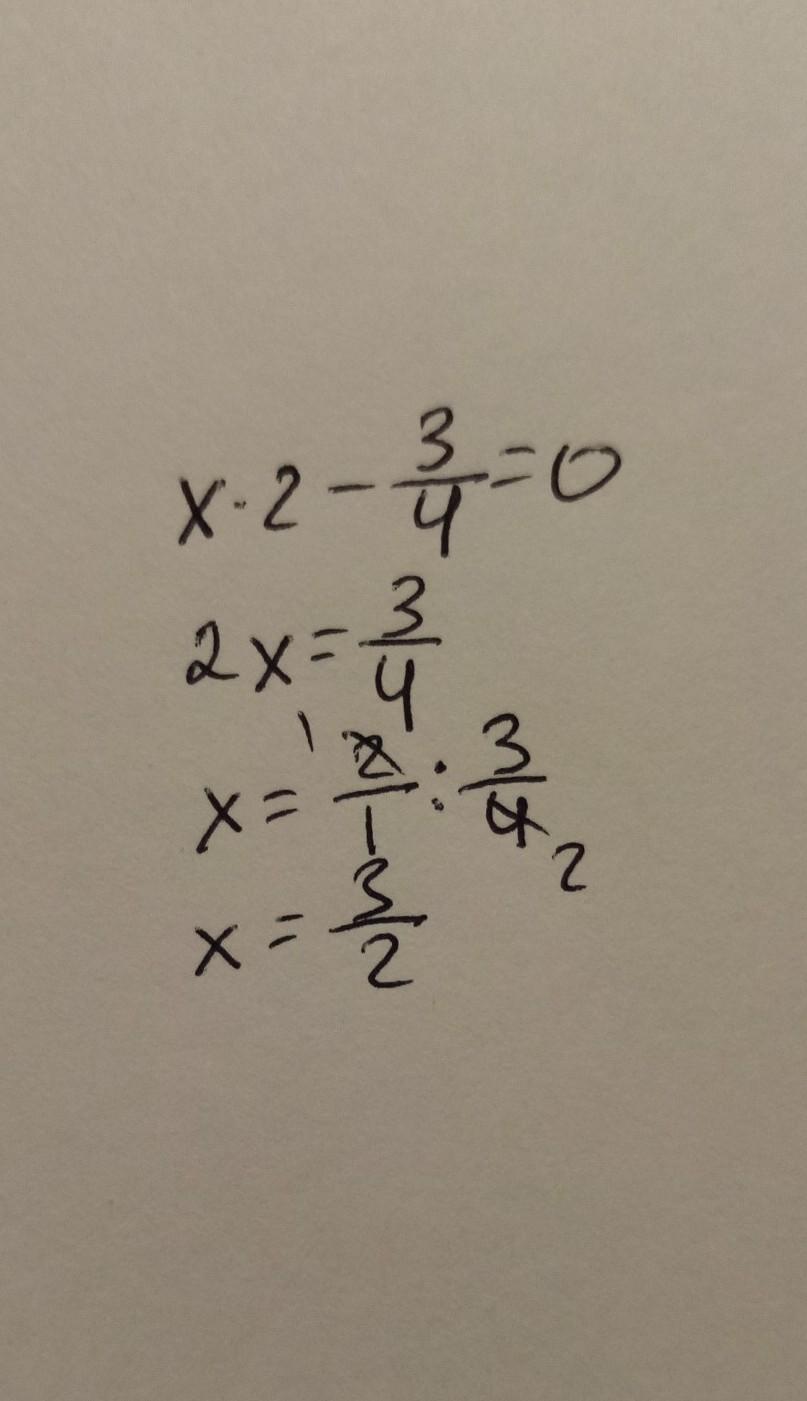 x·2 - 3/4 = 0
2x = 3/4
x = ¹2/1 : 3/4₂
x = 3/2